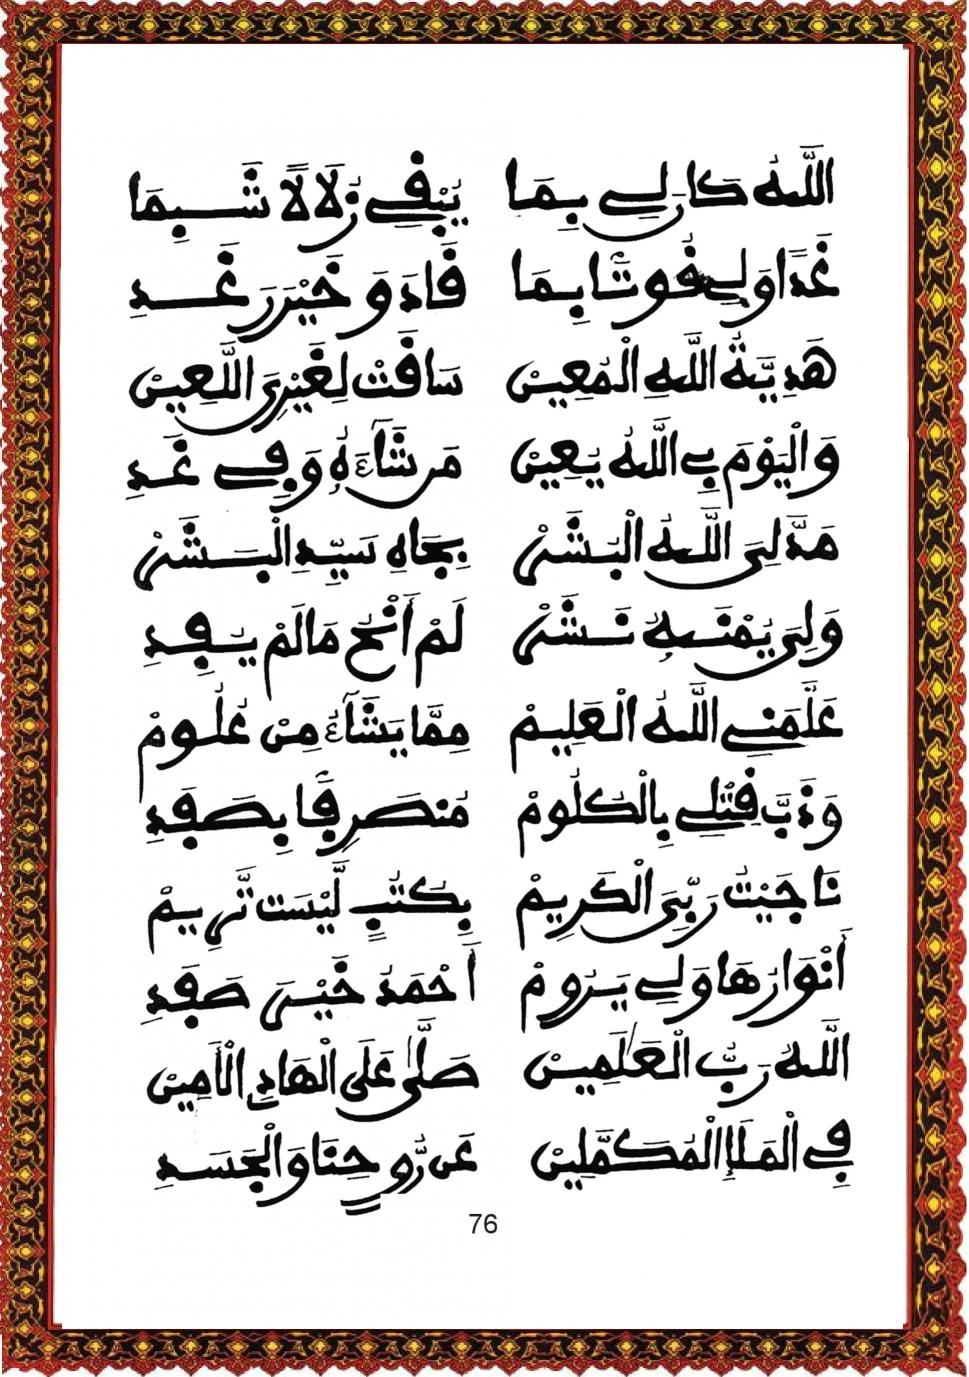 اللَّهُ كَانَ لِي بِمَا يَبْقَى زُلَالًا شَبِمَا
غَدًا وَلِي قُوتًا بِمَا قَادَ وَخَيْرَ رَغَدِ
هَدِيَّةُ اللَّهِ الْمُعِينْ سَاقَتْ لِغَيْرِيَ اللَّعِينْ
وَالْيَوْمَ بِي اللَّهُ يُعِينْ مَن شَاءَهُ وَفِي غَدِ
مَدَّ لِيَ اللَّهُ الْبَشَرْ بِجَاهِ سَيِّدِ الْبَشَرْ
وَلِيَ يُمْنَهُ نَشَرْ لَمْ أَنْحُ مَا لَمْ يَفِدِ
عَلَّمَنِي اللَّهُ الْعَلِيمْ مِمَّا يَشَاءُ مِنْ عُلُومْ
وَذَبَّ قَتْلِي بِالْكُلُومْ مُنصَرِفًا بِصَفَدِ
نَاجَيْتُ رَبِّيَ الْكَرِيمْ بِكُتُبٍ لَّيْسَت تَّرِيمْ
أَنْوَارُهَا وَلِي يَرُومْ أَحْمَدُ خَيْرَ صَفَدِ
اللَّهُ رَبُّ الْعَٰلَمِينْ صَلَّى عَلَى الْهَادِي الْأَمِينْ
فِي الْمَلَإِ الْمُكَمَّلِينْ عَن رُّوحِنَا وَالْجَسَدِ
76